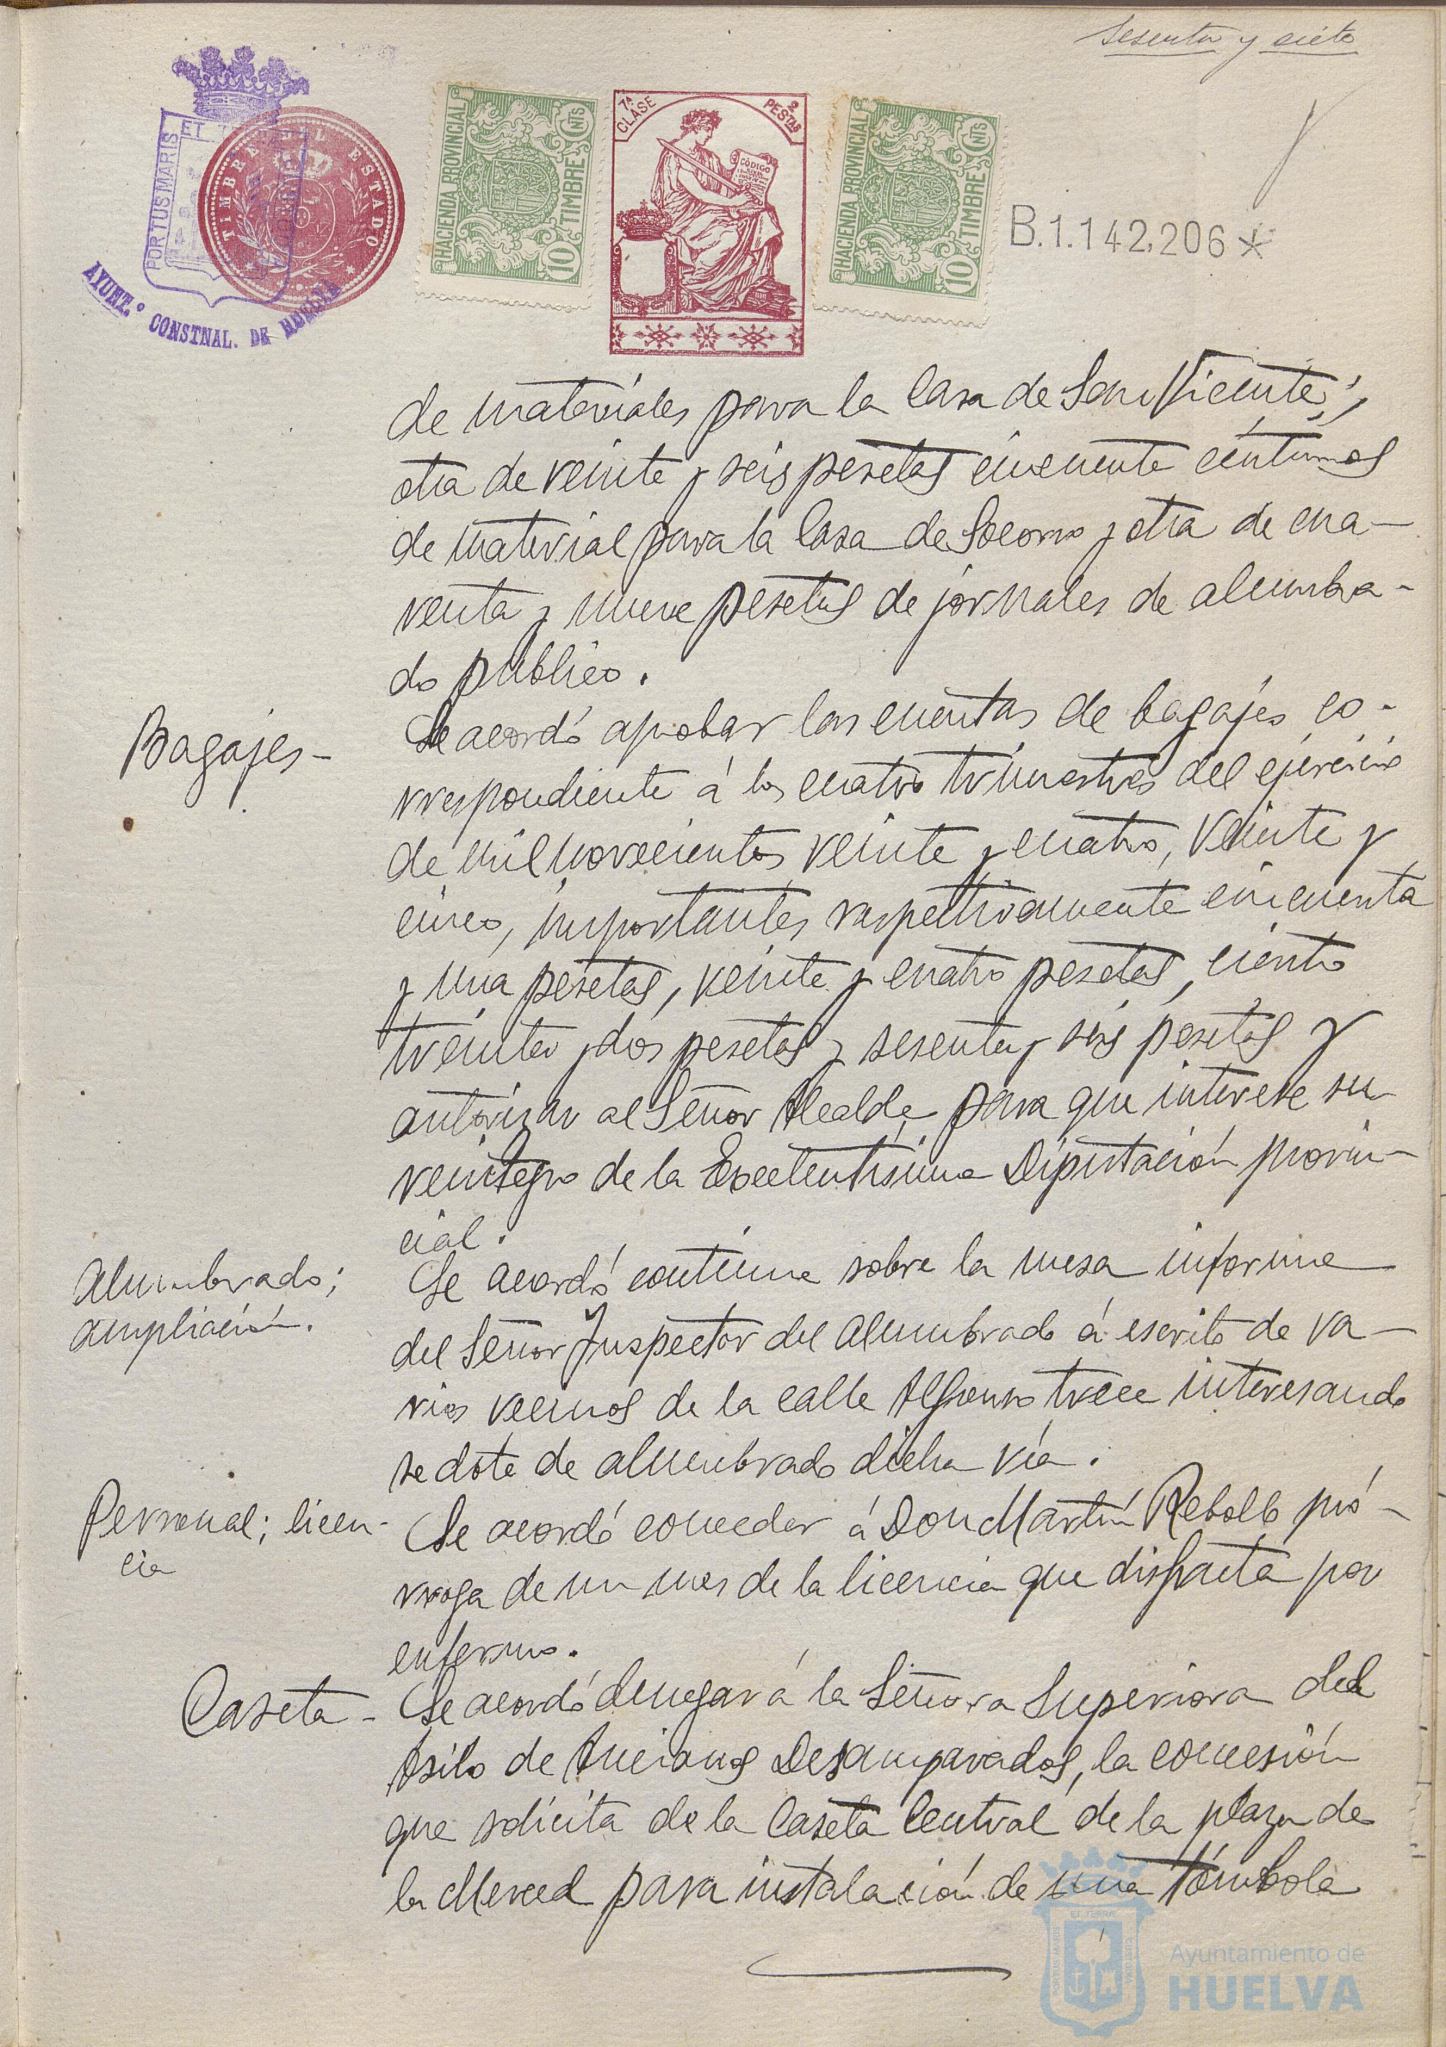 Sesenta y siete
PORTUS MARIS ET TERRAE CUSTODIA
AYUNT.º CONSTNAL. DE HUELVA
TIMBRE DEL ESTADO
HACIENDA PROVINCIAL
10 TIMBRE CNTS
7ª CLASE
2 PESTAS
CÓDIGO
HACIENDA PROVINCIAL
10 TIMBRE CNTS
B.1.142,206*
de materiales para la Casa de San Vicente;
otra de veinte y seis pesetas cincuenta céntimos
de material para la Casa de Socorro y otra de cua-
renta y nueve pesetas de jornales de alumbra-
do público.
Bagajes-
Se acordó aprobar las cuentas de bagajes co-
rrespondiente á los cuatro trimestres del ejercicio
de mil novecientos veinte y cuatro, veinte y
cinco, importantes respectivamente cincuenta
y una pesetas, veinte y cuatro pesetas, ciento
treinta y dos pesetas y sesenta y seis pesetas y
autorizar al Señor Alcalde para que interese su
reintegro de la Excelentísima Diputación provin-
cial.
Alumbrado;
ampliación.
Se acordó continue sobre la mesa informe
del Señor Inspector del alumbrado á escrito de va-
rios vecinos de la calle Alfonso trece interesando
se dote de alumbrado dicha vía.
Personal; licen-
cia
Se acordó conceder á Don Martín Rebollo pró-
rroga de un mes de la licencia que disfruta por
enfermo.
Caseta-
Se acordó denegar á la Señora Superiora del
Asilo de Ancianos Desamparados, la concesión
que solicita de la Caseta Central de la plaza de
la Merced para instalación de una tómbola
Ayuntamiento de
HUELVA